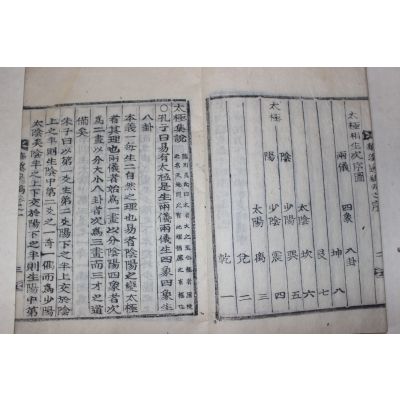 太極相生次序圖
兩儀 四象 八卦
坤 八
艮 七
太陰 坎 六
陰 少陽 巽 五
太極 震 四
陽 少陰 离 三
太陽 兌 二
乾 一
太極集說
○孔子曰易有太極是生兩儀兩儀生四象四象生
八卦
本義一每生二自然之理也易者陰陽之變太極
者其理也兩儀者始爲一畫以分陰陽四象者次
爲二畫以分大小八卦者次爲三畫而三才之道
備矣
朱子曰以第 爻生第二爻陽下之半上交於陰
上之半則生陰中第二爻之一奇一偶而爲少陽
太陰矣陰上之半下交於陽下之半則生陽中第